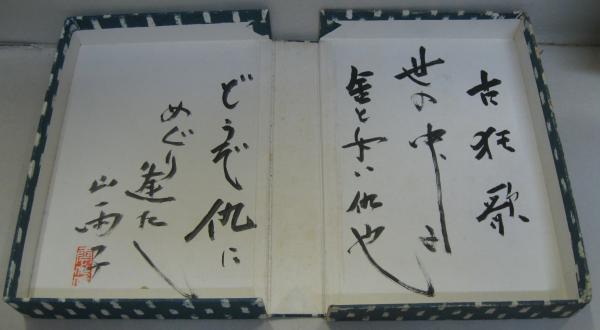 古狂歌
世の中
金と女ハ仇也
どうぞ仇に
めぐり逢たし
山雨子